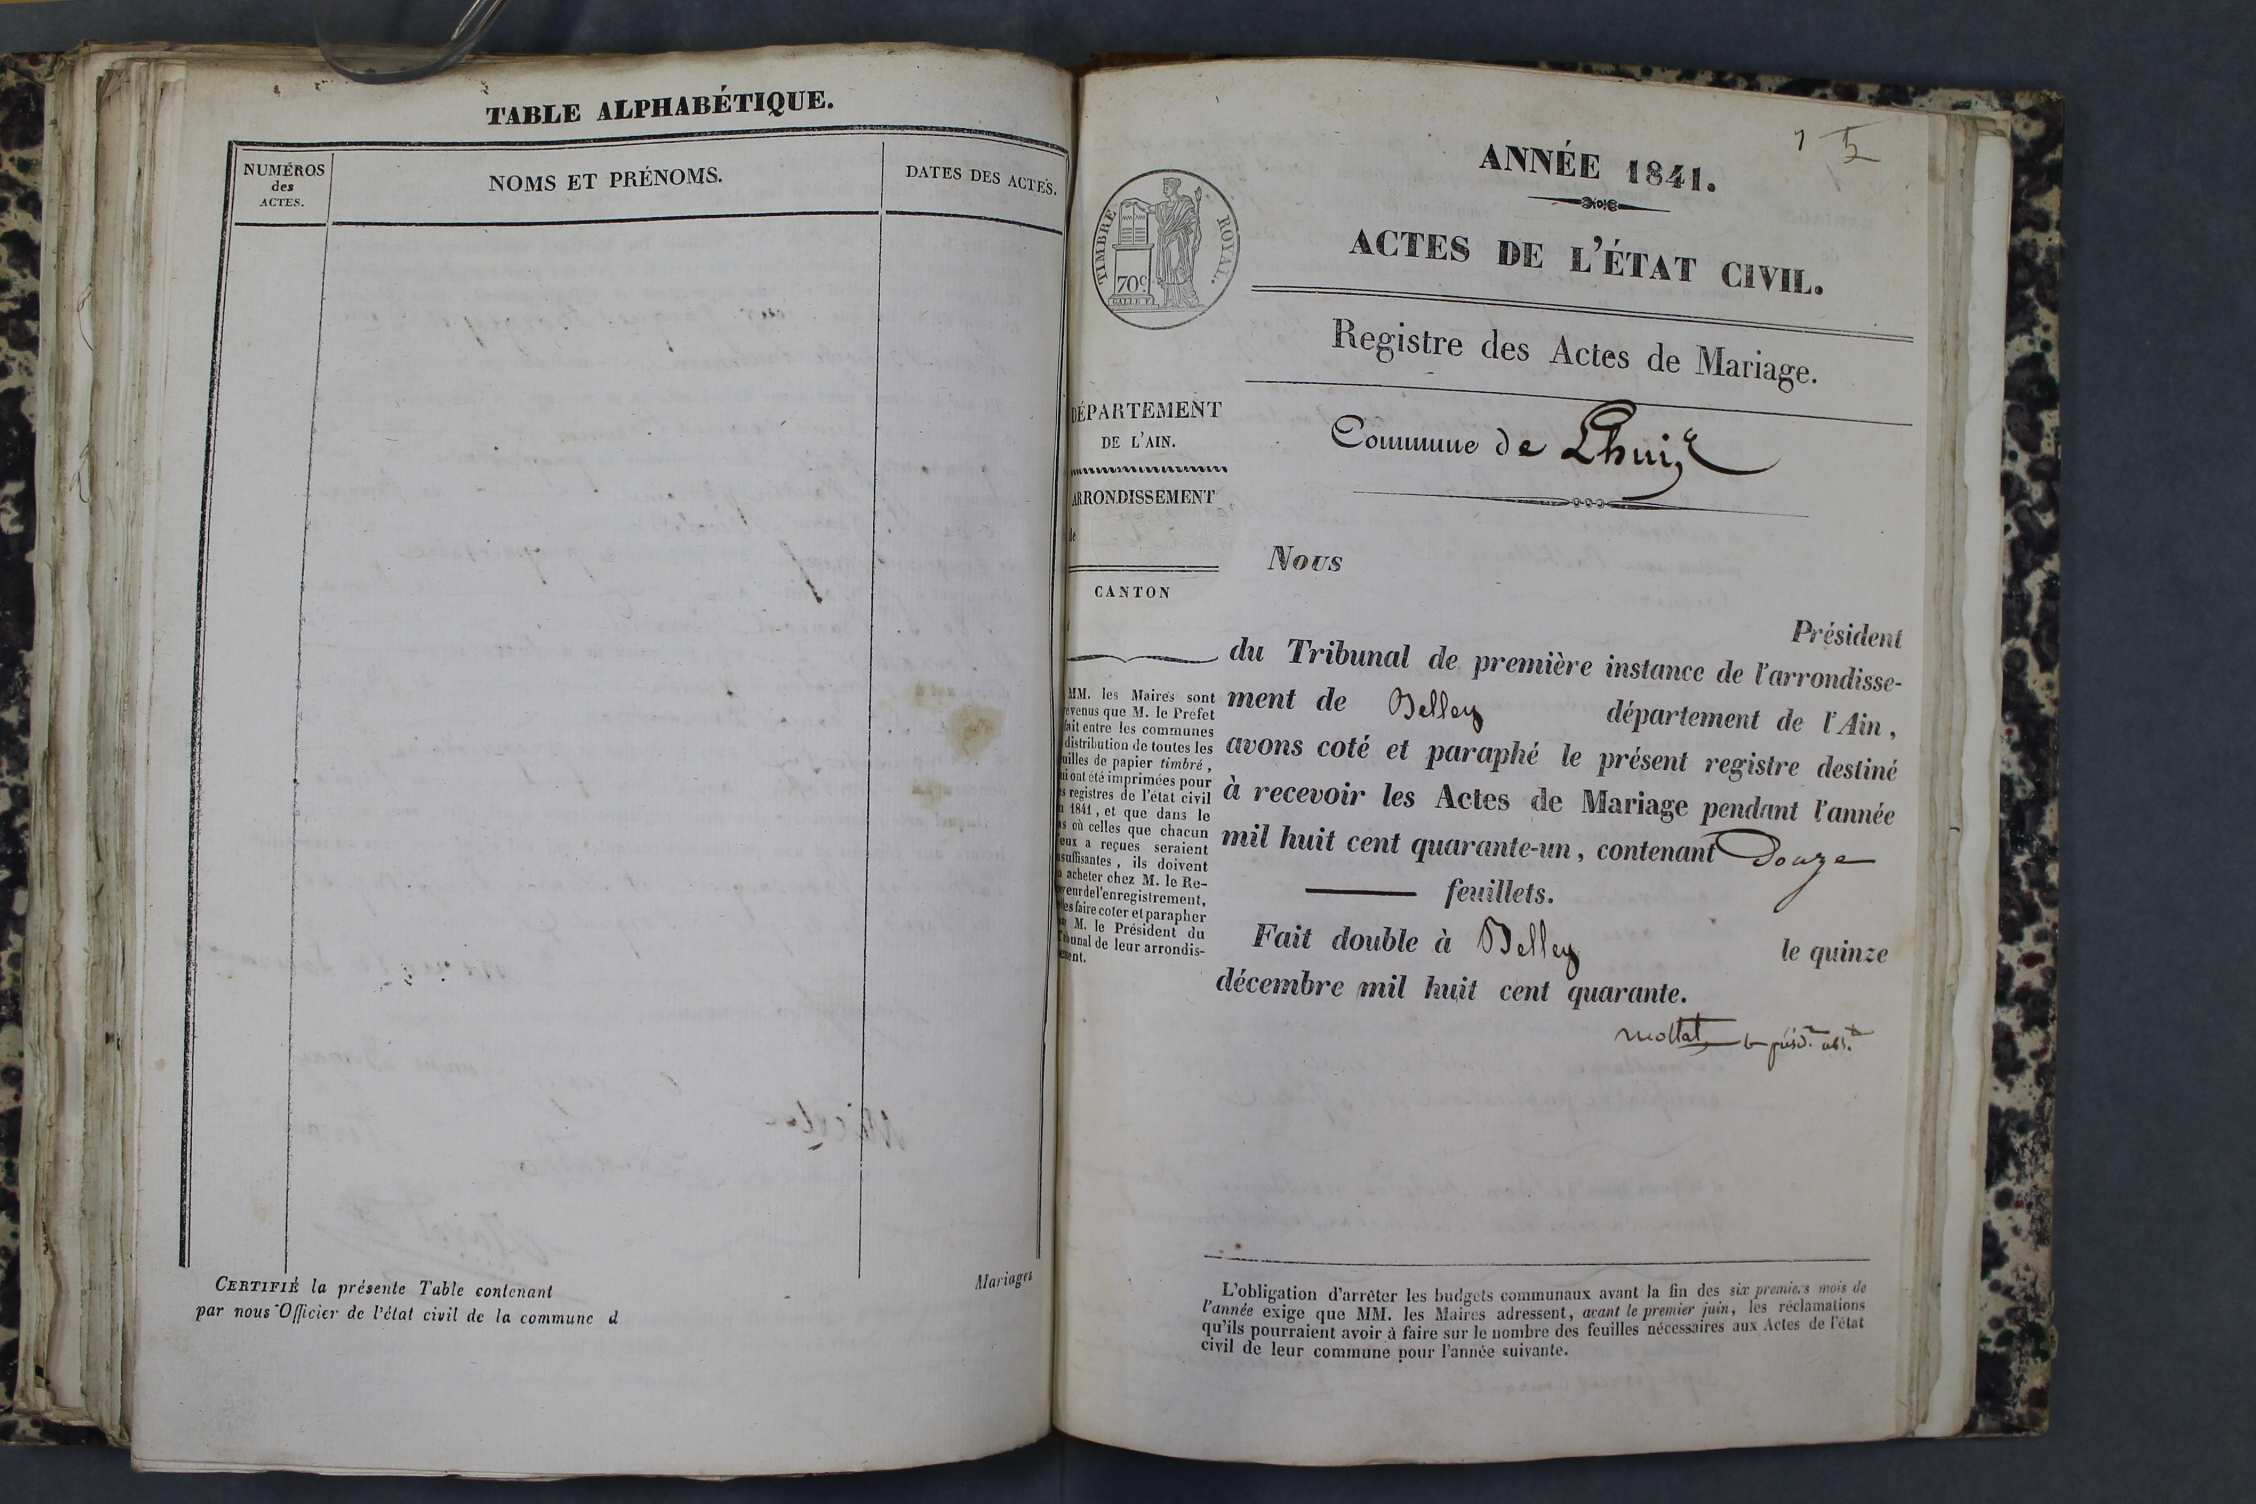 TABLE ALPHABÉTIQUE.
NUMÉROS
des
ACTES.
NOMS ET PRÉNOMS.
DATES DES ACTES.
CERTIFIÉ la présente Table contenant
Mariages
par nous Officier de l'état civil de la commune d
1
ANNÉE 1841.
TIMBRE ROYAL.
70c
ACTES DE L'ÉTAT CIVIL.
Registre des Actes de Mariage.
DÉPARTEMENT
DE L'AIN.
ARRONDISSEMENT
de
CANTON
Commune de Lhuis
Nous
Président
du Tribunal de première instance de l'arrondisse-
ment de Belley département de l'Ain,
avons coté et paraphé le présent registre destiné
à recevoir les Actes de Mariage pendant l'année
mil huit cent quarante-un, contenant Douze
feuillets.
Fait double à Belley le quinze
décembre mil huit cent quarante.
mollat
MM. les Maires sont
revenus que M. le Préfet
fait entre les communes
distribution de toutes les
uilles de papier timbré,
ui ont été imprimées pour
s registres de l'état civil
n 1841, et que dans le
as où celles que chacun
eux a reçues seraient
nsuffisantes, ils doivent
n acheter chez M. le Re-
veur de l'enregistrement,
les faire coter et parapher
M. le Président du
Tribunal de leur arrondis-
ment.
L'obligation d'arrêter les budgets communaux avant la fin des six premiers mois de
l'année exige que MM. les Maires adressent, avant le premier juin, les réclamations
qu'ils pourraient avoir à faire sur le nombre des feuilles nécessaires aux Actes de l'état
civil de leur commune pour l'année suivante.